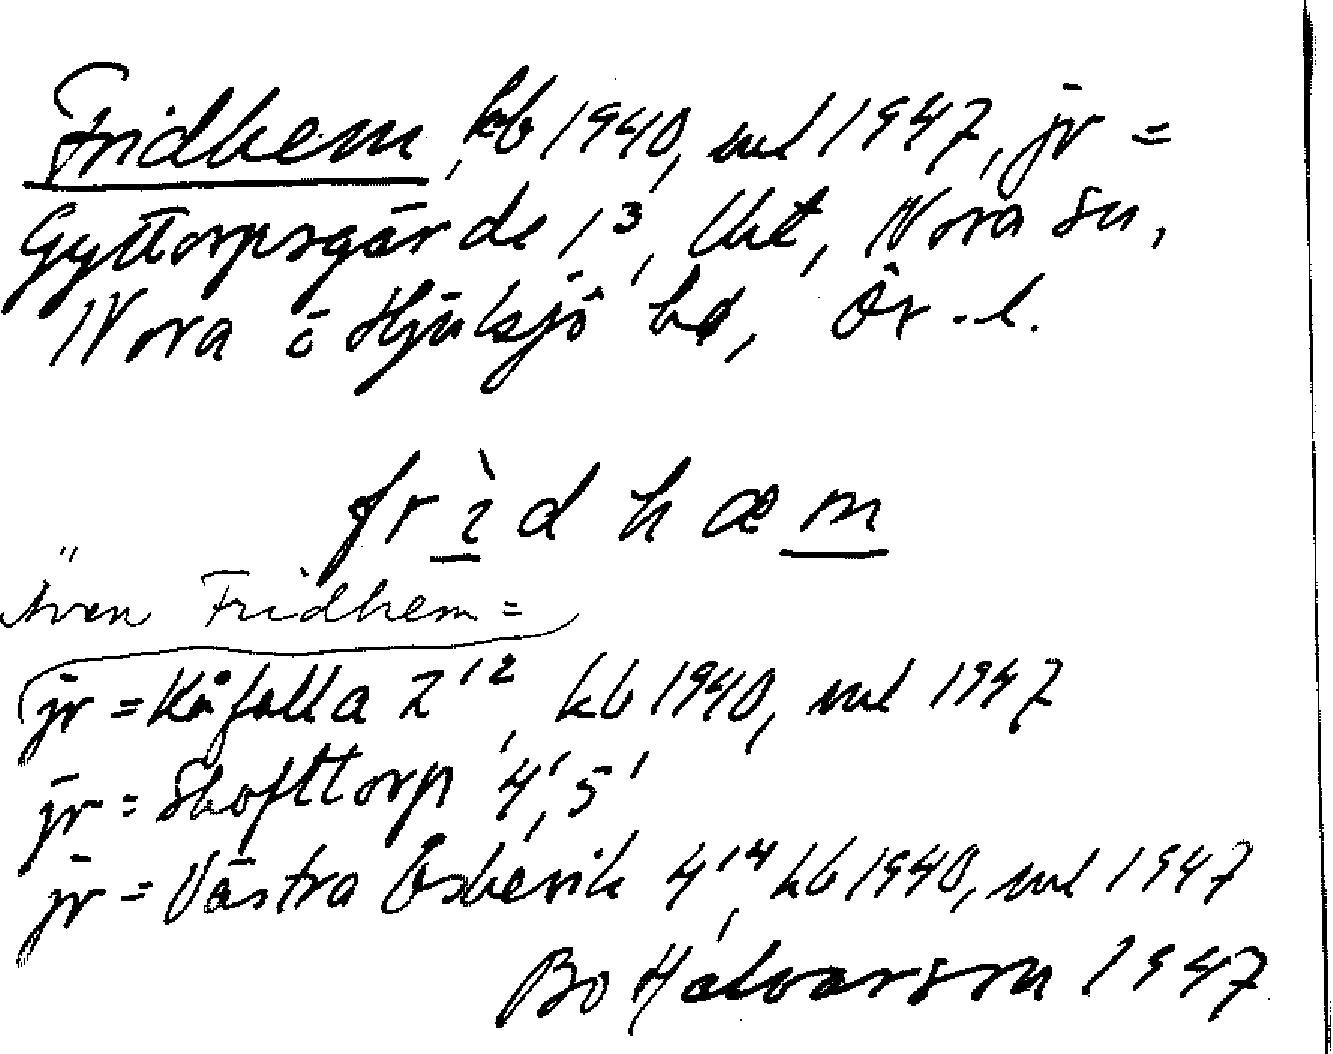 Fridhem, kb 1940, ml 1947, jr =
Gyttorpsgärde 1³, lht, Nora sn,
Nora o Hjulsjö bd, Ör. l.
frìdhæm
Även Fridhem =
jr = Kåfalla 2¹², kb 1940, ml 1947
jr = Skofttorp 4¹, 5¹
jr = Västra Esbevik 4¹⁴, kb 1940, ml 1947
Bo Halvarson 1947